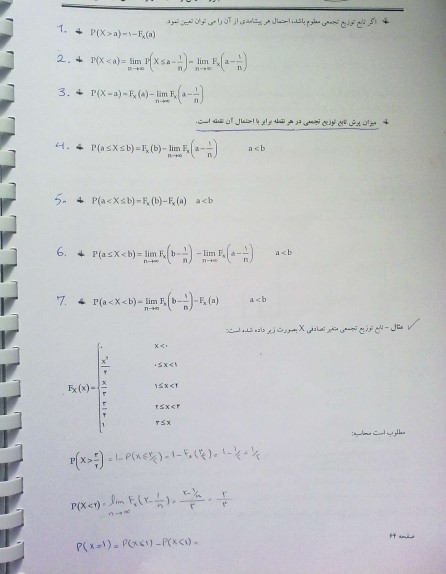 اگر تابع توزیع تجمعی معلوم باشد، احتمال هر پیشامدی از آن را می توان تعیین نمود.
1. P(X>a)=۱−Fₓ(a)
2. P(X<a)=lim n→∞ P(X≤a−۱/n)=lim n→∞ Fₓ(a−۱/n)
3. P(X=a)=Fₓ(a)−lim n→∞ Fₓ(a−۱/n)
میزان پرش تابع توزیع تجمعی در هر نقطه برابر با احتمال آن نقطه است.
4. P(a≤X≤b)=Fₓ(b)−lim n→∞ Fₓ(a−۱/n) a<b
5. P(a<X≤b)=Fₓ(b)−Fₓ(a) a<b
6. P(a≤X<b)=lim n→∞ Fₓ(b−۱/n)−lim n→∞ Fₓ(a−۱/n) a<b
7. P(a<X<b)=lim n→∞ Fₓ(b−۱/n)−Fₓ(a) a<b
مثال - تابع توزیع تجمعی متغیر تصادفی X بصورت زیر داده شده است:
۰ X<۰
۰≤X<۱
Fₓ(x)= ۱≤X<۲
۲≤X<۳
۱ ۳≤X
مطلوب است محاسبه:
P(X>
P(X<۲)=lim n→∞ Fₓ(۲−۱/n)=
P(X=1)=P(X≤1)−P(X<1)=
صفحه